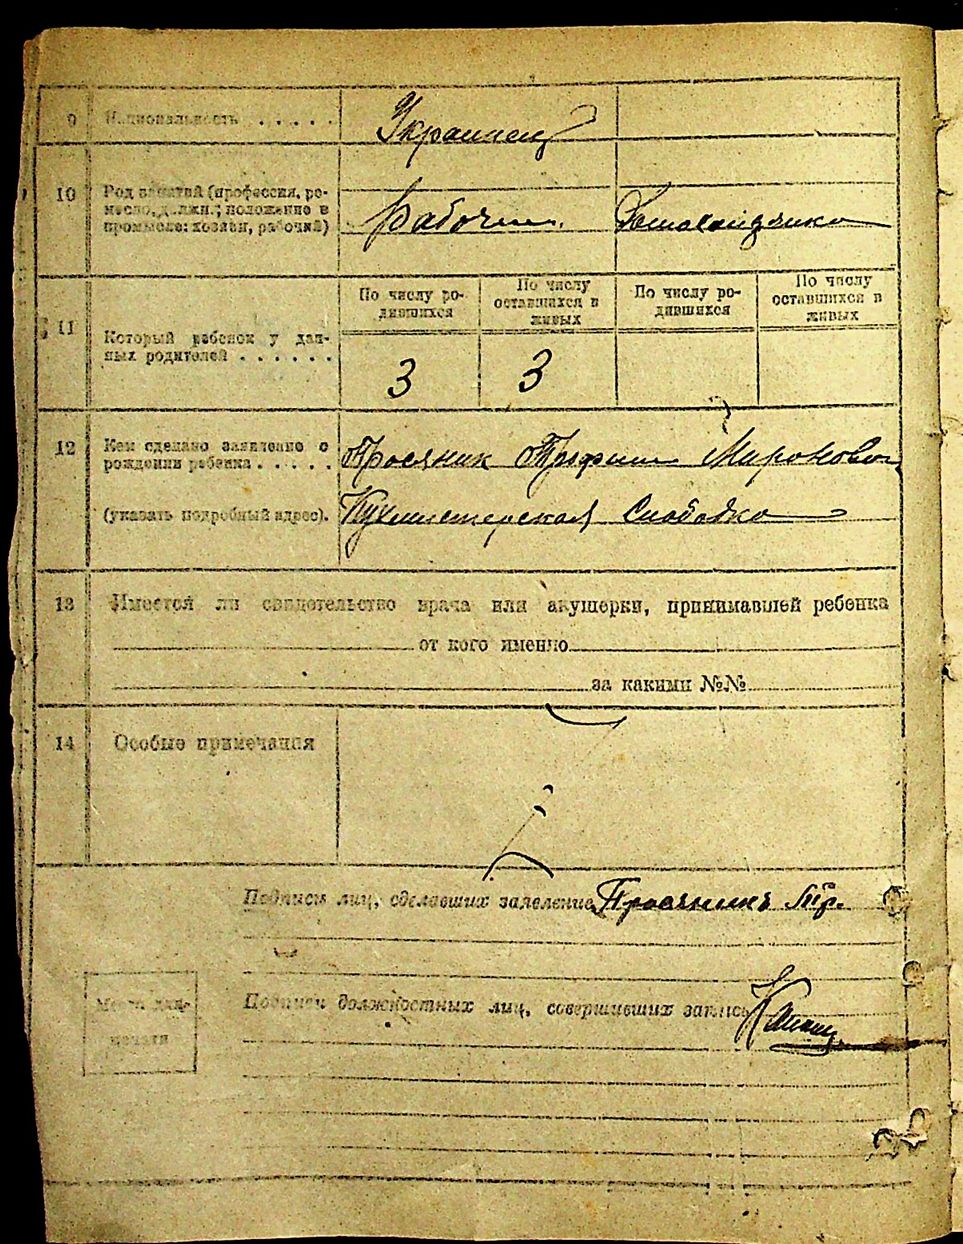 9 Национальность . . . . . Украинец
10 Род занятий (профессия, ре-
месло, должн.; положение в
промысле: хозяин, рабочий)
Рабочий. Домохозяйка
11 Который ребенок у дан-
ных родителей . . . . . .
По числу ро-
дившихся
По числу
оставшихся в
живых
По числу ро-
дившихся
По числу
оставшихся в
живых
3 3
12 Кем сделано заявление о
рождении ребенка . . . . .
Просяник Трофим Миронович
(указать подробный адрес).
Кухмистерская Слободка
13 Имеется ли свидетельство врача или акушерки, принимавшей ребенка
от кого именно
за какими №№
14 Особые примечания
Подписи лиц, сделавших заявление Просяник Тр.
Подписи должностных лиц, совершивших запись
Место для
печати